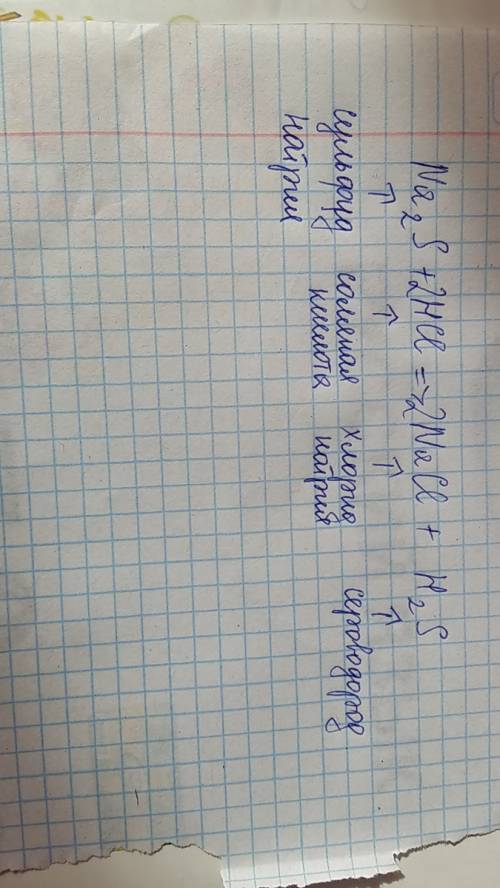 Na₂S + 2HCl => 2NaCl + H₂S
↑ ↑ ↑ ↑
сульфид соляная хлорид сероводород
натрия кислота натрия